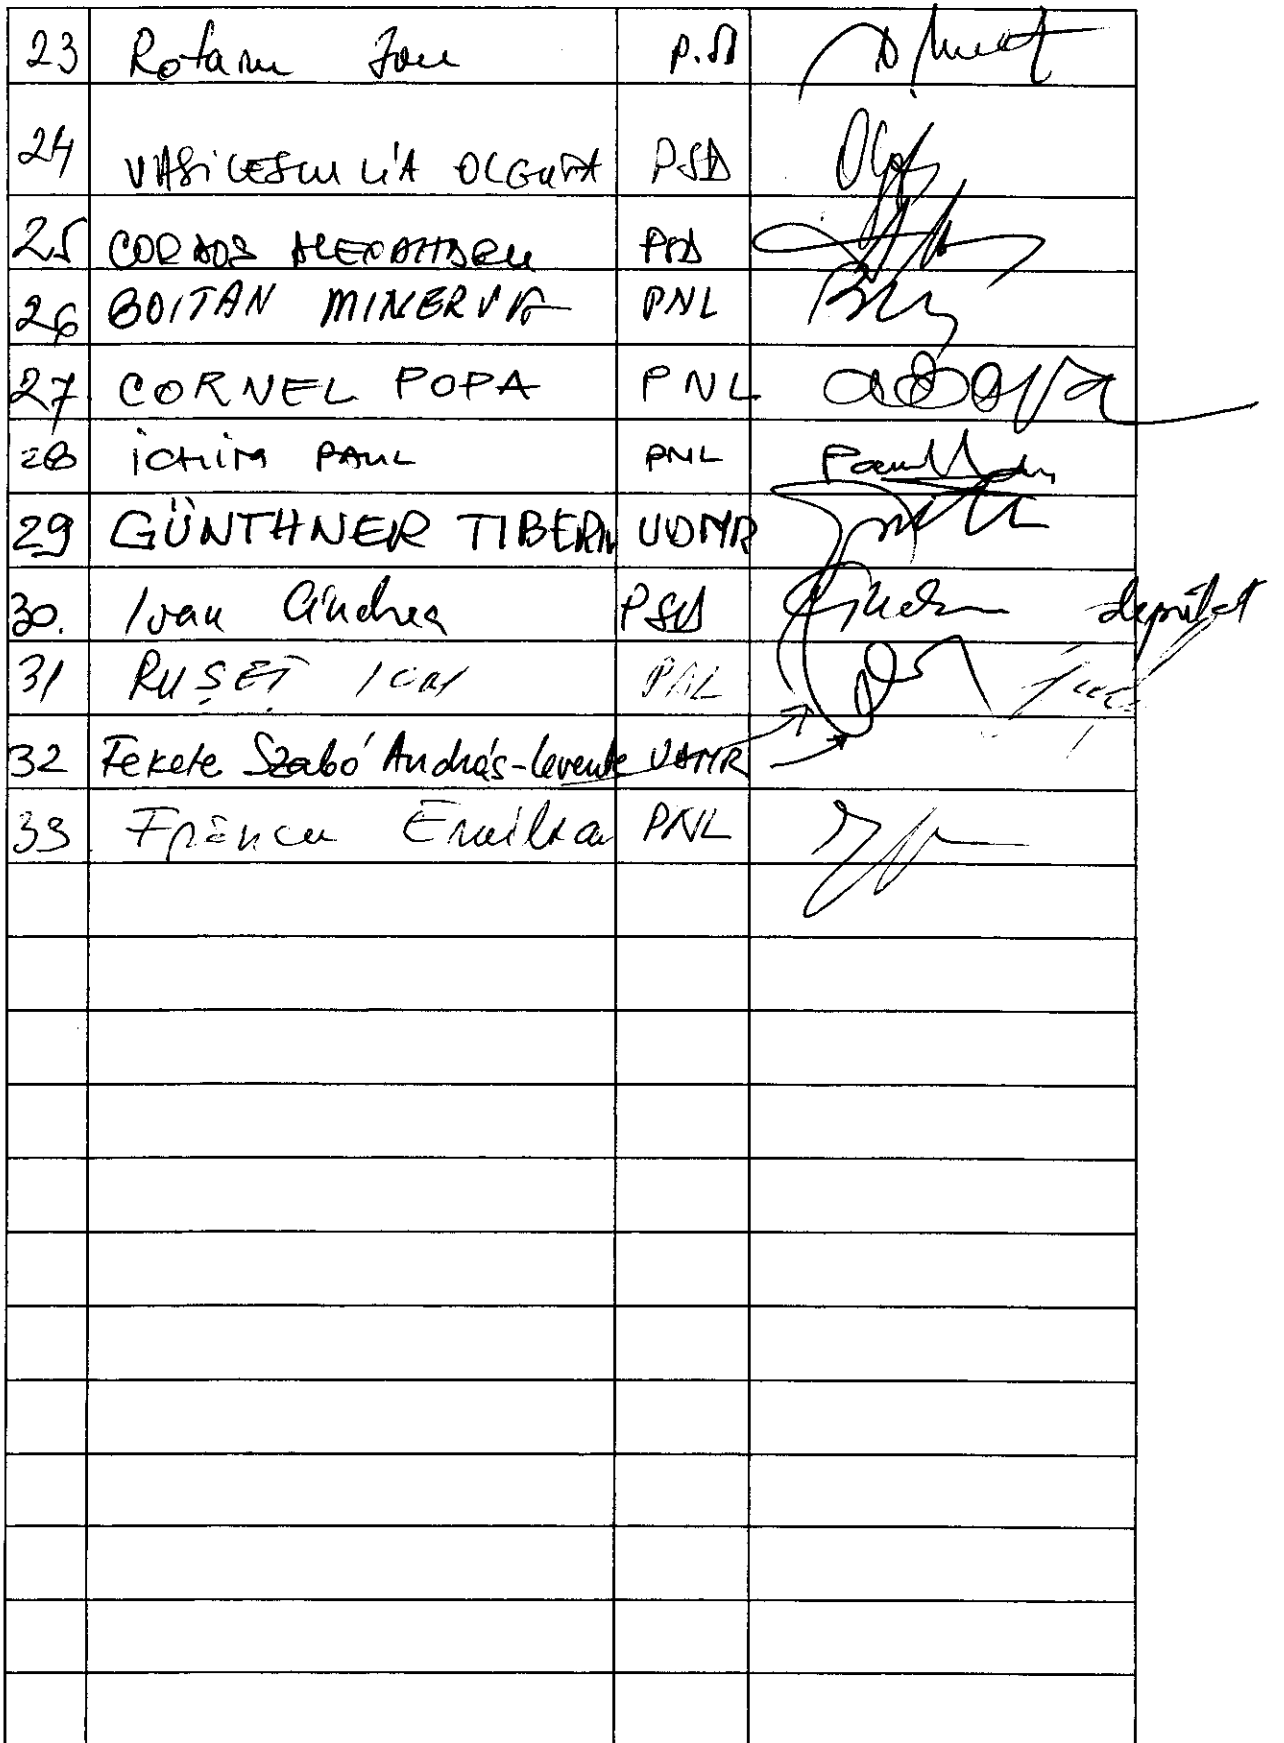 23 Rotaru Ion P.S.D
24 VASILESCU LIA OLGUȚA PSD
25 CORDOS ALEXANDRU PSD
26 BOITAN MINERVA PNL
27 CORNEL POPA PNL
28 ICHIM PAUL PNL Paul
29 GÜNTHNER TIBERIU UDMR
30. Ivan Cindrea PSD deputat
31 RUȘEȚ ION PNL
32 Fekete Szabó András-Levente UDMR
33 Frâncu Emilian PNL